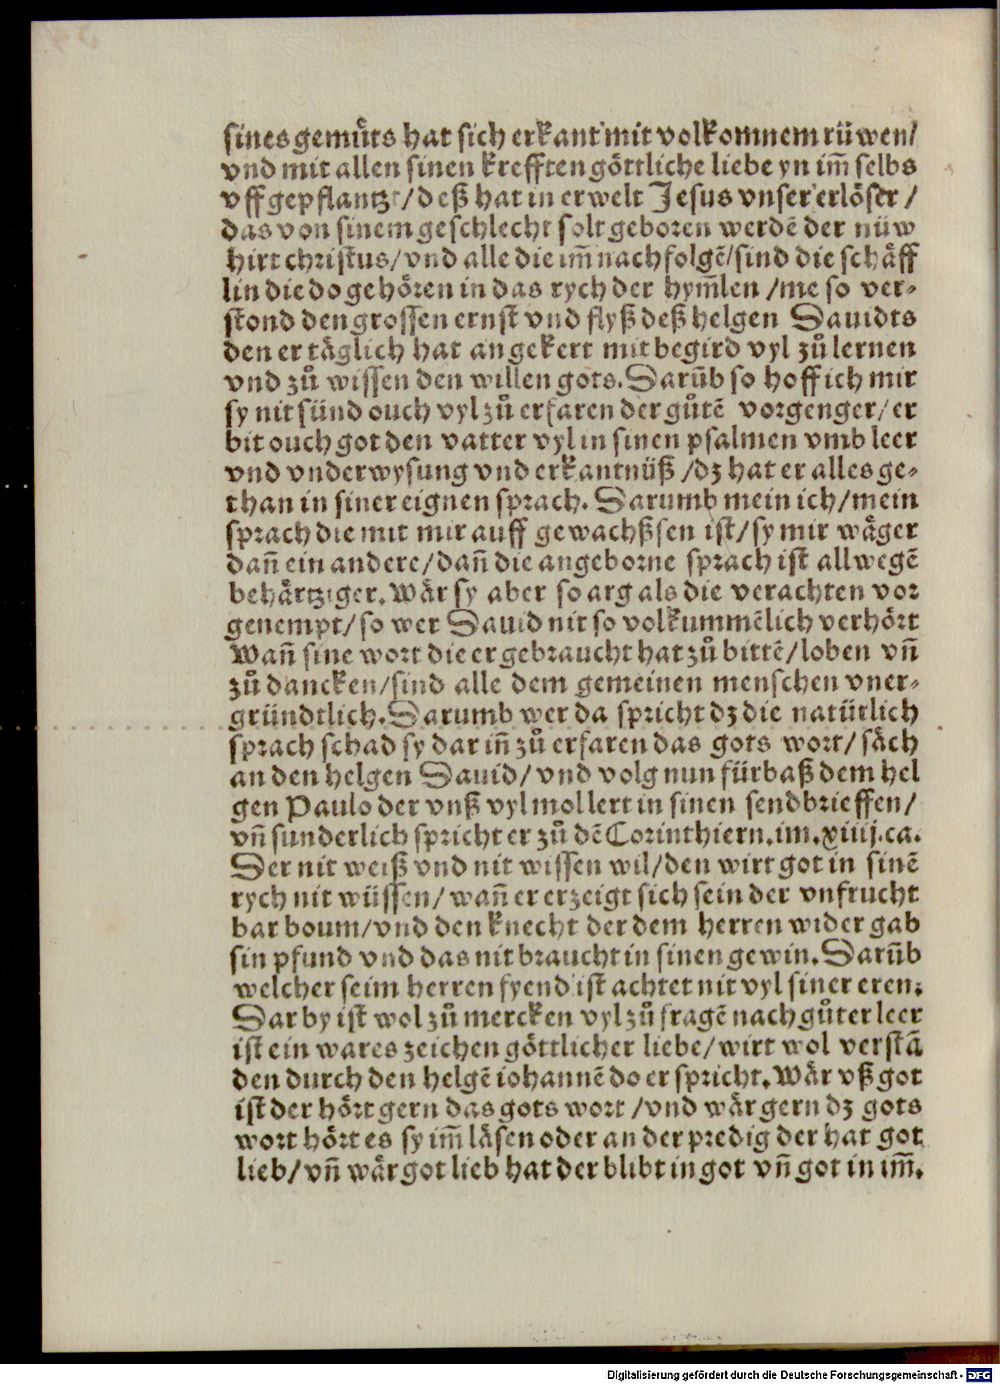 sines gemuͤts hat sich erkant mit volkomnem rüwen/
vnd mit allen sinen krefften göttliche liebe yn im̄ selbs
vff gepflantzt/deß hat in erwelt Jesus vnser erlöser/
das von sinem geschlecht solt geboren werdē der nüw
hirt christus/vnd alle die im̄ nachfolgē/sind die schäff
lin die do gehören in das rych der hym̄len/me so ver⸗
stond den grossen ernst vnd flyß deß helgen Dauidts
den er täglich hat angekert mit begird vyl zuͦ lernen
vnd zuͦ wissen den willen gots. Darūb so hoff ich mir
sy nit sünd ouch vyl zuͦ erfaren der guͦtē vorgenger/er
bit ouch got den vatter vyl in sinen psalmen vmb leer
vnd vnderwysung vnd erkantnüß/dz hat er alles ge⸗
than in siner eignen sprach. Darumb mein ich/mein
sprach die mit mir auff gewachßsen ist/sy mir wäger
dañ ein andere/dañ die angeborne sprach ist allwegē
behärtziger. Wär sy aber so arg als die verachten vor
genempt/so wer Dauid nit so volkummēlich verhört
Wañ sine wort die er gebraucht hat zuͦ bittē/loben vñ
zuͦ dancken/sind alle dem gemeinen menschen vner⸗
gründtlich. Darumb wer da spricht dz die natürlich
sprach schad sy dar iñ zuͦ erfaren das gots wort/säch
an den helgen Dauid/vnd volg nun fürbaß dem hel
gen Paulo der vnß vyl mollert in sinen sendbrieffen/
vñ sunderlich spricht er zuͦ dē Corinthiern. im. xiiij. ca.
Der nit weiß vnd nit wissen wil/den wirt got in sinē
rych nit wüssen/wañ er erzeigt sich sein der vnfrucht
bar boum/vnd den knecht der dem herren wider gab
sin pfund vnd das nit braucht in sinen gewin. Darūb
welcher seim herren fyend ist achtet nit vyl siner eren.
Dar by ist wol zuͦ mercken vyl zuͦ fragē nach guͦter leer
ist ein wares zeichen göttlicher liebe/wirt wol verstā
den durch den helgē iohannē do er spricht. Wär vß got
ist der hört gern das gots wort/vnd wär gern dz gots
wort hört es sy im̄ läsen oder an der predig der hat got
lieb/vñ wär got lieb hat der blibt in got vñ got in im̄.
Digitalisierung gefördert durch die Deutsche Forschungsgemeinschaft - DFG